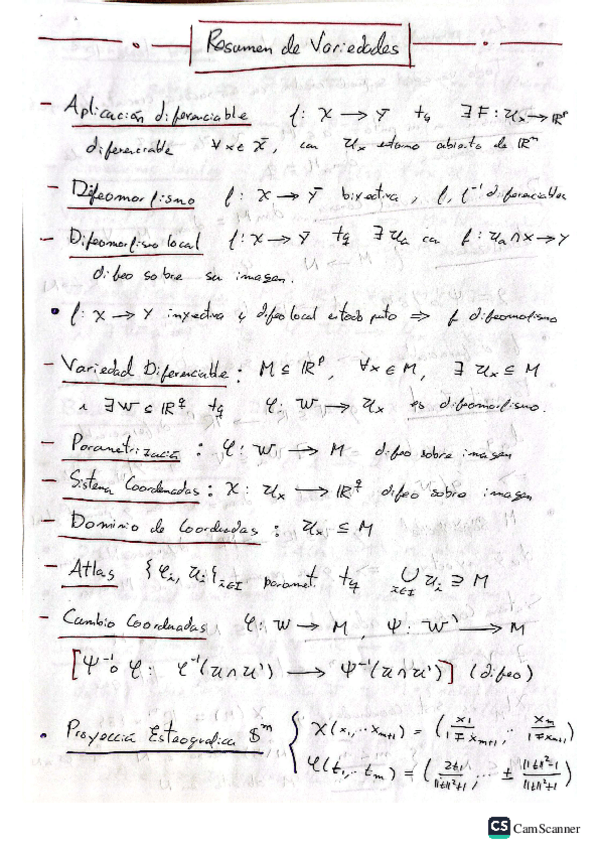 Resumen de Variedades
- Aplicación diferenciable f: X → Y tq ∃ F: Ux → ℝᵖ
diferenciable ∀x∈X, con Ux entorno abierto de ℝⁿ
- Difeomorfismo f: X → Y biyectiva, f, f⁻¹ diferenciables
- Difeomorfismo local f: X → Y tq ∃ Ua con f: Ua ∩ X → Y
difeo sobre su imagen.
• f: X → Y inyectiva y difeo local e todo punto ⇒ f difeomorfismo
- Variedad Diferenciable: M ⊆ ℝᵖ, ∀x ∈ M, ∃ Ux ⊆ M
i ∃ W ⊆ ℝ^q tq φ: W → Ux es difeomorfismo.
- Parametrización: φ: W → M difeo sobre imagen
- Sistema Coordenadas: X: Ux → ℝ^q difeo sobre imagen
- Dominio de Coordenadas: Ux ⊆ M
- Atlas {φi, Ui}i∈I paramet. tq ⋃i∈I Ui ⊇ M
- Cambio Coordenadas φ: W → M, Ψ: W' → M
[Ψ⁻¹∘φ: φ⁻¹(U∩U') → Ψ⁻¹(U∩U')] (difeo)
• Proyección Esteografica $ᵐ { X(x₁,..xm+1) = (x1/(1∓xm+1), .. xm/(1∓xm+1))
φ(t₁,.. tm) = (2t₁/(||t||²+1), .. ± (||t||²-1)/(||t||²+1))
CS CamScanner